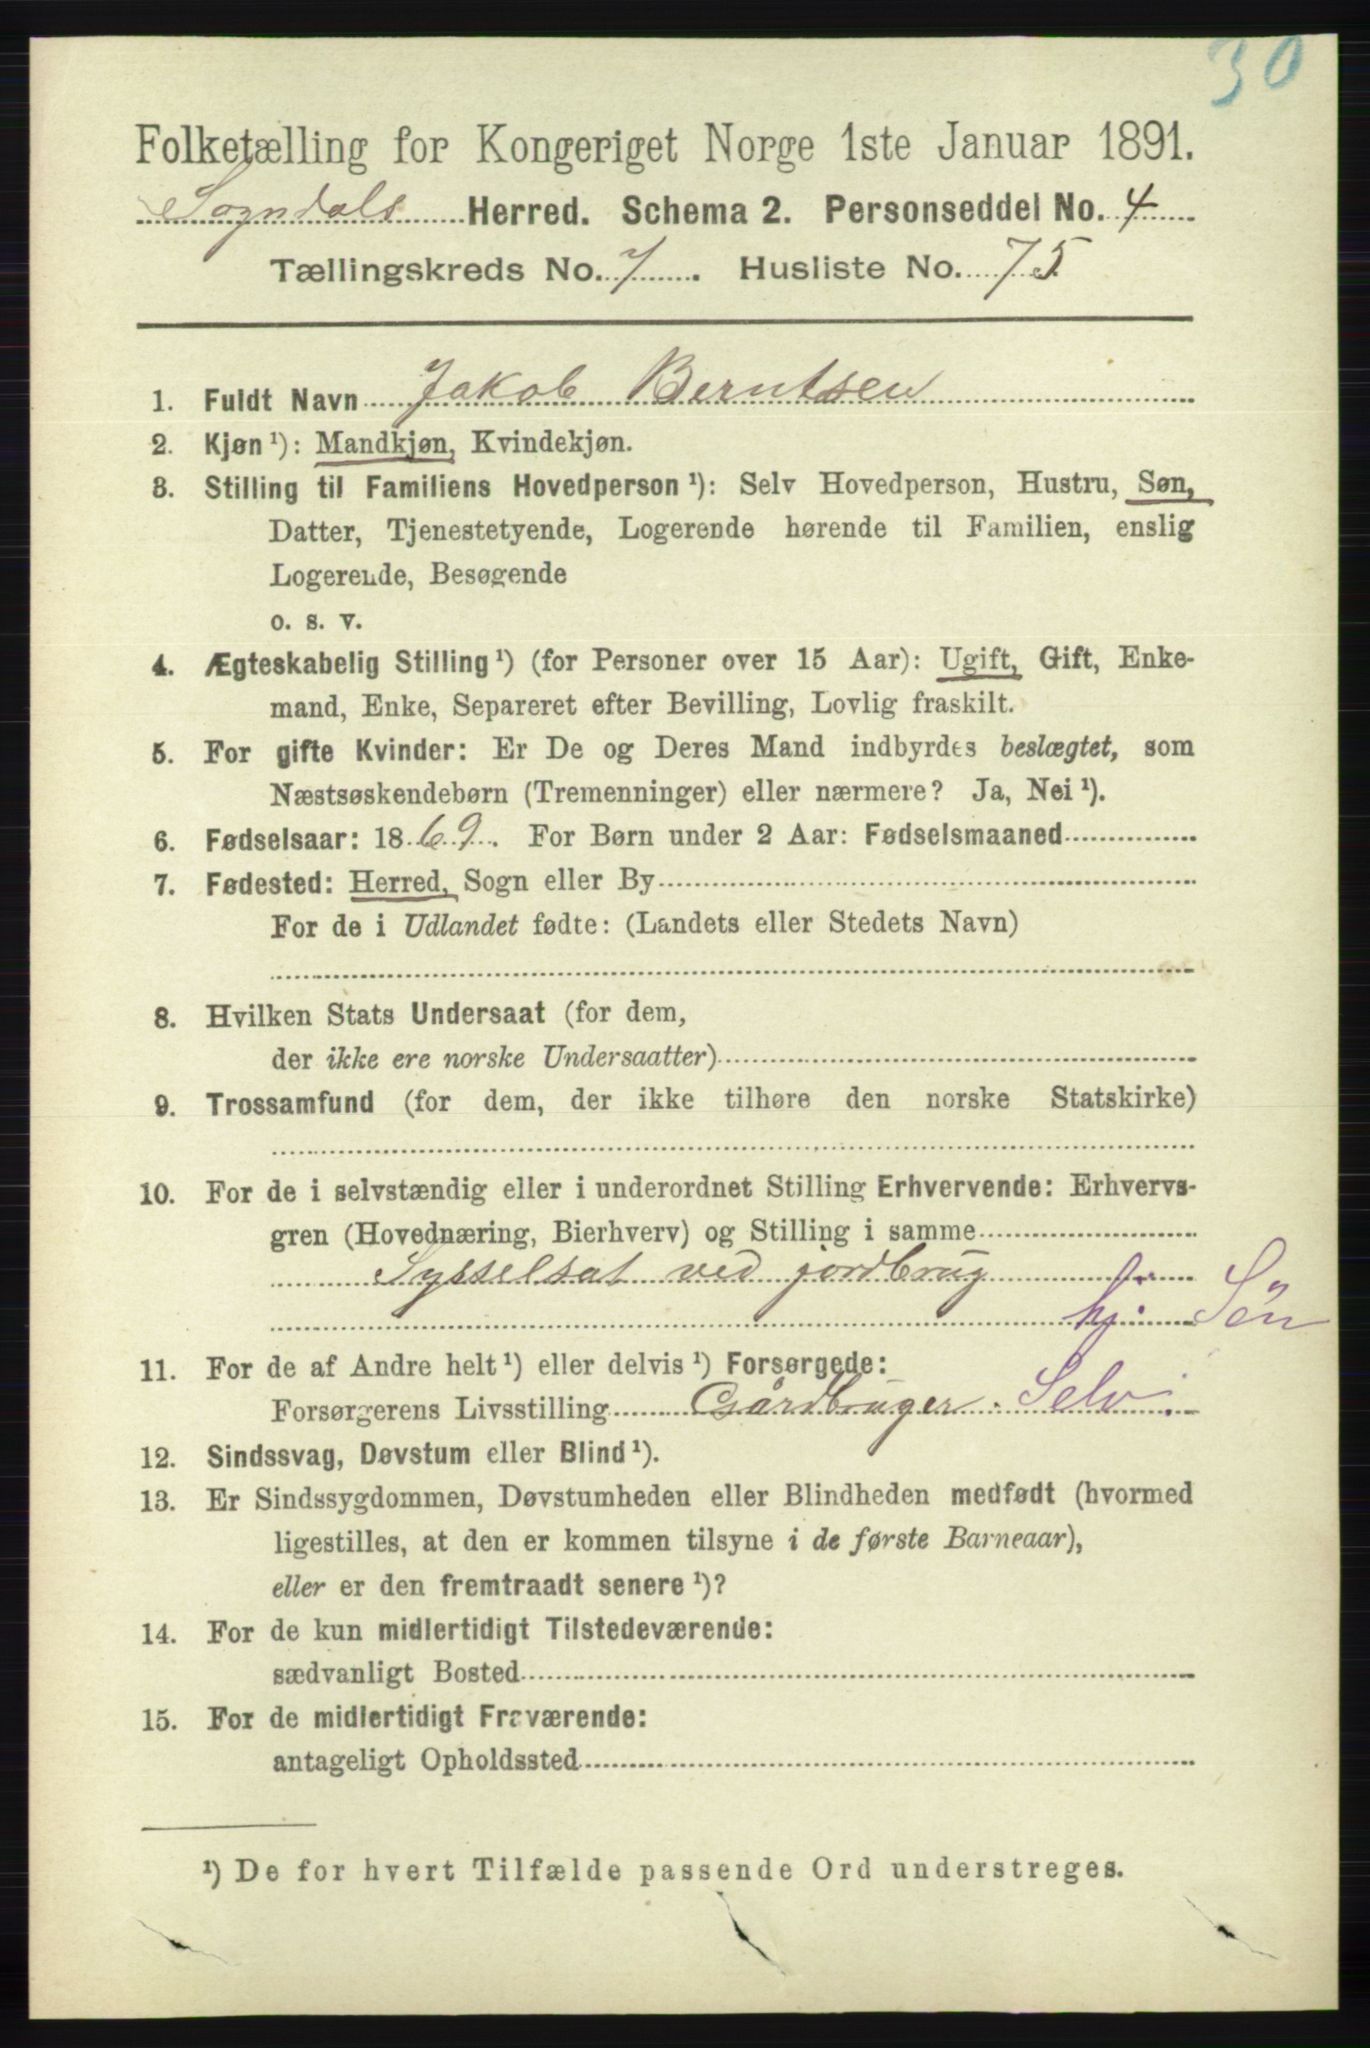 30
Folketælling for Kongeriget Norge 1ste Januar 1891.
Sogndals Herred. Schema 2. Personseddel No. 4
Tællingskreds No. 7. Husliste No. 75
1. Fuldt Navn Jakob Berntsen
2. Kjøn ¹): Mandkjøn, Kvindekjøn.
3. Stilling til Familiens Hovedperson ¹): Selv Hovedperson, Hustru, Søn,
Datter, Tjenestetyende, Logerende hørende til Familien, enslig
Logerende, Besøgende
o. s. v.
4. Ægteskabelig Stilling ¹) (for Personer over 15 Aar): Ugift, Gift, Enke-
mand, Enke, Separeret efter Bevilling, Lovlig fraskilt.
5. For gifte Kvinder: Er De og Deres Mand indbyrdes beslægtet, som
Næstsøskendebørn (Tremenninger) eller nærmere? Ja, Nei ¹).
6. Fødselsaar: 1869. For Børn under 2 Aar: Fødselsmaaned
7. Fødested: Herred, Sogn eller By
For de i Udlandet fødte: (Landets eller Stedets Navn)
8. Hvilken Stats Undersaat (for dem,
der ikke ere norske Undersaatter)
9. Trossamfund (for dem, der ikke tilhøre den norske Statskirke)
10. For de i selvstændig eller i underordnet Stilling Erhvervende: Erhvervs-
gren (Hovednæring, Bierhverv) og Stilling i samme
Sysselsat ved jordbrug
hj. Søn
11. For de af Andre helt ¹) eller delvis ¹) Forsørgede:
Forsørgerens Livsstilling Gårdbruger. Selv.
12. Sindssvag, Døvstum eller Blind ¹).
13. Er Sindssygdommen, Døvstumheden eller Blindheden medfødt (hvormed
ligestilles, at den er kommen tilsyne i de første Barneaar),
eller er den fremtraadt senere ¹)?
14. For de kun midlertidigt Tilstedeværende:
sædvanligt Bosted
15. For de midlertidigt Fraværende:
antageligt Opholdssted
¹) De for hvert Tilfælde passende Ord understreges.